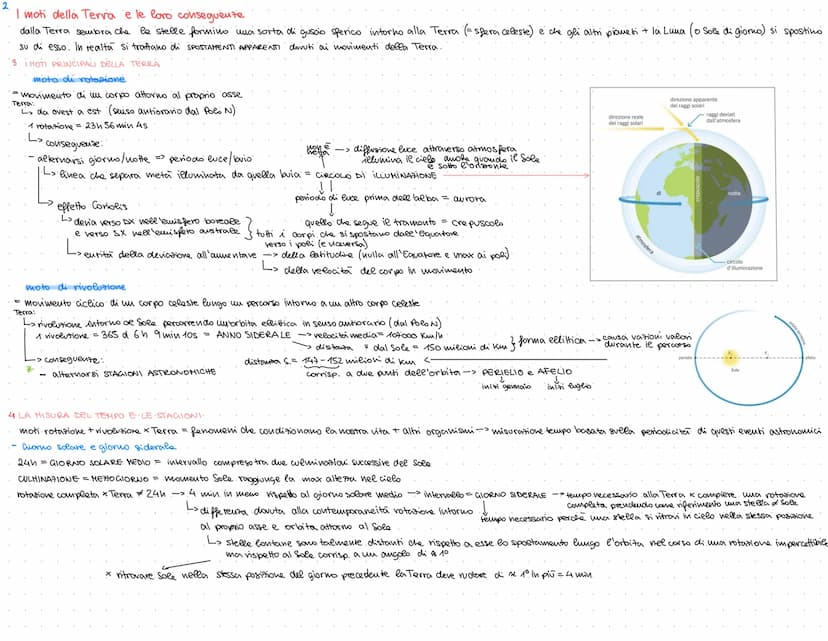 2
I moti della Terra e le loro conseguenze
dalla Terra sembra che le stelle formino una sorta di guscio sferico intorno alla Terra (= sfera celeste) e che gli altri pianeti + la Luna (o Sole di giorno) si spostino
su di esso. In realtà si trattano di SPOSTAMENTI APPARENTI dovuti ai movimenti della Terra.
3 I MOTI PRINCIPALI DELLA TERRA
moto di rotazione
= movimento di un corpo attorno al proprio asse
Terra:
↳ da ovest a est (senso antiorario dal Polo N)
1 rotazione = 23h 56 min 4s
↳ conseguenze:
- alternarsi giorno/notte => periodo luce/buio
non è netta → diffusione luce attraverso atmosfera
illumina il cielo anche quando il Sole
è sotto l'orizzonte
↳ linea che separa metà illuminata da quella buia = CIRCOLO DI ILLUMINAZIONE
periodo di luce prima dell'alba = aurora
quello che segue il tramonto = crepuscolo
↳ effetto Coriolis
↳ devia verso DX nell'emisfero boreale
e verso SX nell'emisfero australe } tutti i corpi che si spostano dall'Equatore
verso i poli (e viceversa)
↳ entità della deviazione all'aumentare → della latitudine (nulla all'Equatore e max ai poli)
↳ della velocità del corpo in movimento
direzione apparente
dei raggi solari
direzione reale
dei raggi solari
raggi deviati
dall'atmosfera
dì
crepuscolo
notte
atmosfera
circolo
d'illuminazione
moto di rivoluzione
= movimento ciclico di un corpo celeste lungo un percorso intorno a un altro corpo celeste
Terra:
↳ rivoluzione intorno al Sole percorrendo un'orbita ellittica in senso antiorario (dal Polo N)
1 rivoluzione = 365 d 6h 9 min 10s = ANNO SIDERALE → velocità media = 107000 km/h
distanza " dal Sole = 150 milioni di km } forma ellittica → causa variazioni valori
durante il percorso
↳ conseguenze:
distanza = 147 - 152 milioni di km
- alternarsi STAGIONI ASTRONOMICHE
corrisp. a due punti dell'orbita → PERIELIO e AFELIO
inizi gennaio inizi luglio
Sole
4 LA MISURA DEL TEMPO E LE STAGIONI
moti rotazione + rivoluzione x Terra = fenomeni che condizionano la nostra vita + altri organismi → misurazione tempo basata sulla periodicità di questi eventi astronomici
- Giorno solare e giorno siderale
24h = GIORNO SOLARE MEDIO = intervallo compreso tra due culminazioni successive del Sole
CULMINAZIONE = MEZZOGIORNO = momento Sole raggiunge la max altezza nel cielo
rotazione completa x Terra ≠ 24h → 4 min in meno rispetto al giorno solare medio → intervallo = GIORNO SIDERALE → tempo necessario alla Terra x compiere una rotazione
completa, prendendo come riferimento una stella ≠ Sole
↳ differenza dovuta alla contemporaneità rotazione intorno
al proprio asse e orbita attorno al Sole
tempo necessario perché una stella si ritrovi in cielo nella stessa posizione
↳ stelle lontane sono talmente distanti che rispetto a esse lo spostamento lungo l'orbita nel corso di una rotazione impercettibile
ma rispetto al Sole corrisp. a un angolo di ≈ 1°
x ritrovare Sole nella stessa posizione del giorno precedente la Terra deve ruotare di ≈ 1° in più = 4 min